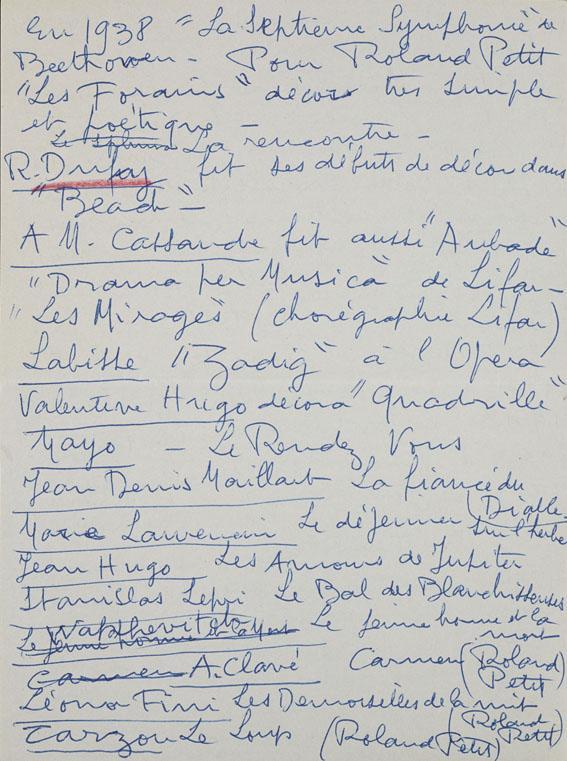 En 1938 "La Septieme Symphonie" de
Beethoven - Pour Roland Petit
"Les Forains" décor très simple
et poétique
La rencontre -
R. Dufay fit ses débuts de décor dans
"Beach" -
A M. Cassandre fit aussi "Aubade"
"Drama per Musica" de Lifar -
"Les Mirages" (chorégraphie Lifar)
Labisse "Zadig" à l'Opera
Valentine Hugo décora "Quadrille"
Mayo - Le Rendez Vous
Jean Denis Maillart La fiancé du Diable
Marie Laurencin Le déjeuner sur l'herbe
Jean Hugo Les Amours de Jupiter
Stanislas Lepri Le Bal des Blanchisseuses
Wakhevitch Le jeune homme et la mort
Le jeune homme et la mort
Carmen A. Clavé Carmen (Roland Petit)
Léonor Fini Les Demoiselles de la nuit (Roland Petit)
Carzou Le Loup (Roland Petit)